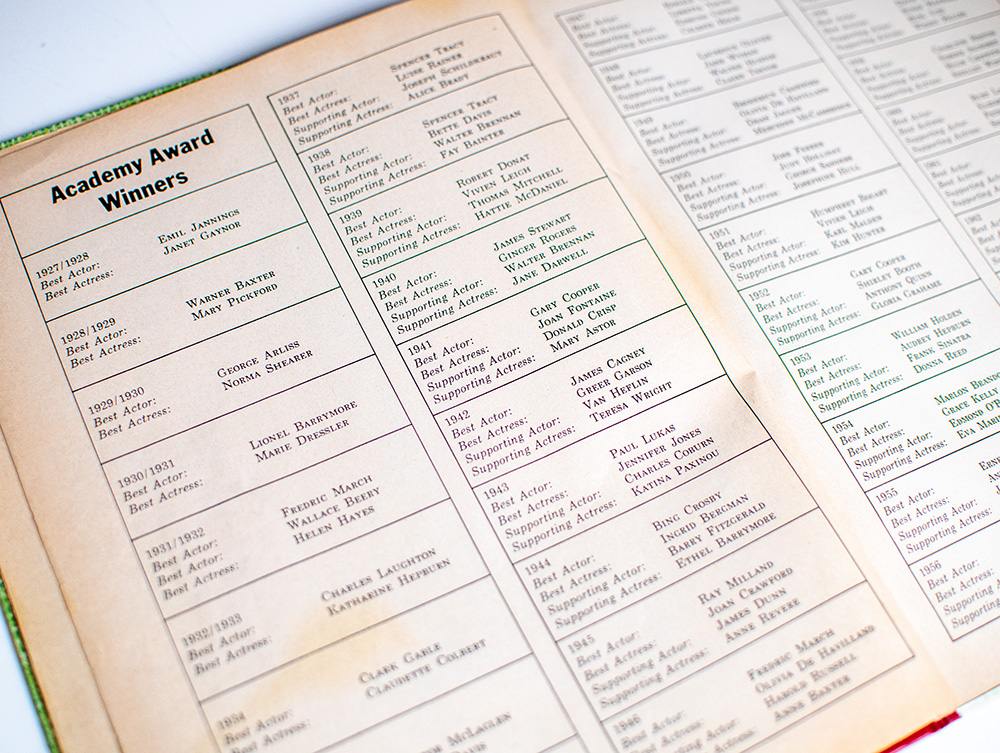 Academy Award
Winners
1927/1928
Best Actor: EMIL JANNINGS
Best Actress: JANET GAYNOR
1928/1929
Best Actor: WARNER BAXTER
Best Actress: MARY PICKFORD
1929/1930
Best Actor: GEORGE ARLISS
Best Actress: NORMA SHEARER
1930/1931
Best Actor: LIONEL BARRYMORE
Best Actress: MARIE DRESSLER
1931/1932
Best Actor: FREDRIC MARCH
Best Actor: WALLACE BEERY
Best Actress: HELEN HAYES
1932/1933
Best Actor: CHARLES LAUGHTON
Best Actress: KATHARINE HEPBURN
1934
Best Actor: CLARK GABLE
Best Actress: CLAUDETTE COLBERT
McLAGLEN
1937
Best Actor: SPENCER TRACY
Best Actress: LUISE RAINER
Supporting Actor: JOSEPH SCHILDKRAUT
Supporting Actress: ALICE BRADY
1938
Best Actor: SPENCER TRACY
Best Actress: BETTE DAVIS
Supporting Actor: WALTER BRENNAN
Supporting Actress: FAY BAINTER
1939
Best Actor: ROBERT DONAT
Best Actress: VIVIEN LEIGH
Supporting Actor: THOMAS MITCHELL
Supporting Actress: HATTIE McDANIEL
1940
Best Actor: JAMES STEWART
Best Actress: GINGER ROGERS
Supporting Actor: WALTER BRENNAN
Supporting Actress: JANE DARWELL
1941
Best Actor: GARY COOPER
Best Actress: JOAN FONTAINE
Supporting Actor: DONALD CRISP
Supporting Actress: MARY ASTOR
1942
Best Actor: JAMES CAGNEY
Best Actress: GREER GARSON
Supporting Actor: VAN HEFLIN
Supporting Actress: TERESA WRIGHT
1943
Best Actor: PAUL LUKAS
Best Actress: JENNIFER JONES
Supporting Actor: CHARLES COBURN
Supporting Actress: KATINA PAXINOU
1944
Best Actor: BING CROSBY
Best Actress: INGRID BERGMAN
Supporting Actor: BARRY FITZGERALD
Supporting Actress: ETHEL BARRYMORE
1945
Best Actor: RAY MILLAND
Best Actress: JOAN CRAWFORD
Supporting Actor: JAMES DUNN
Supporting Actress: ANNE REVERE
1946
Best Actor: FREDRIC MARCH
Best Actress: OLIVIA DE HAVILLAND
Supporting Actor: HAROLD RUSSELL
Supporting ANNE BAXTER
1949
Best Actor:
Best Actress: OLIVIA DE HAVILLAND
Supporting Actor:
Supporting Actress:
1950
Best Actor: JOSE FERRER
Best Actress: JUDY HOLLIDAY
Supporting Actor: GEORGE SANDERS
Supporting Actress: JOSEPHINE HULL
1951
Best Actor: HUMPHREY BOGART
Best Actress: VIVIEN LEIGH
Supporting Actor: KARL MALDEN
Supporting Actress: KIM HUNTER
1952
Best Actor: GARY COOPER
Best Actress: SHIRLEY BOOTH
Supporting Actor: ANTHONY QUINN
Supporting Actress: GLORIA GRAHAME
1953
Best Actor: WILLIAM HOLDEN
Best Actress: AUDREY HEPBURN
Supporting Actor: FRANK SINATRA
Supporting Actress: DONNA REED
1954
Best Actor: MARLON BRANDO
Best Actress: GRACE KELLY
Supporting Actor: EDMOND
Supporting Actress: EVA
1955
Best Actor:
Best Actress:
Supporting Actor:
Supporting Actress:
1956
Best Actor:
Best Actress:
Supporting
Supporting